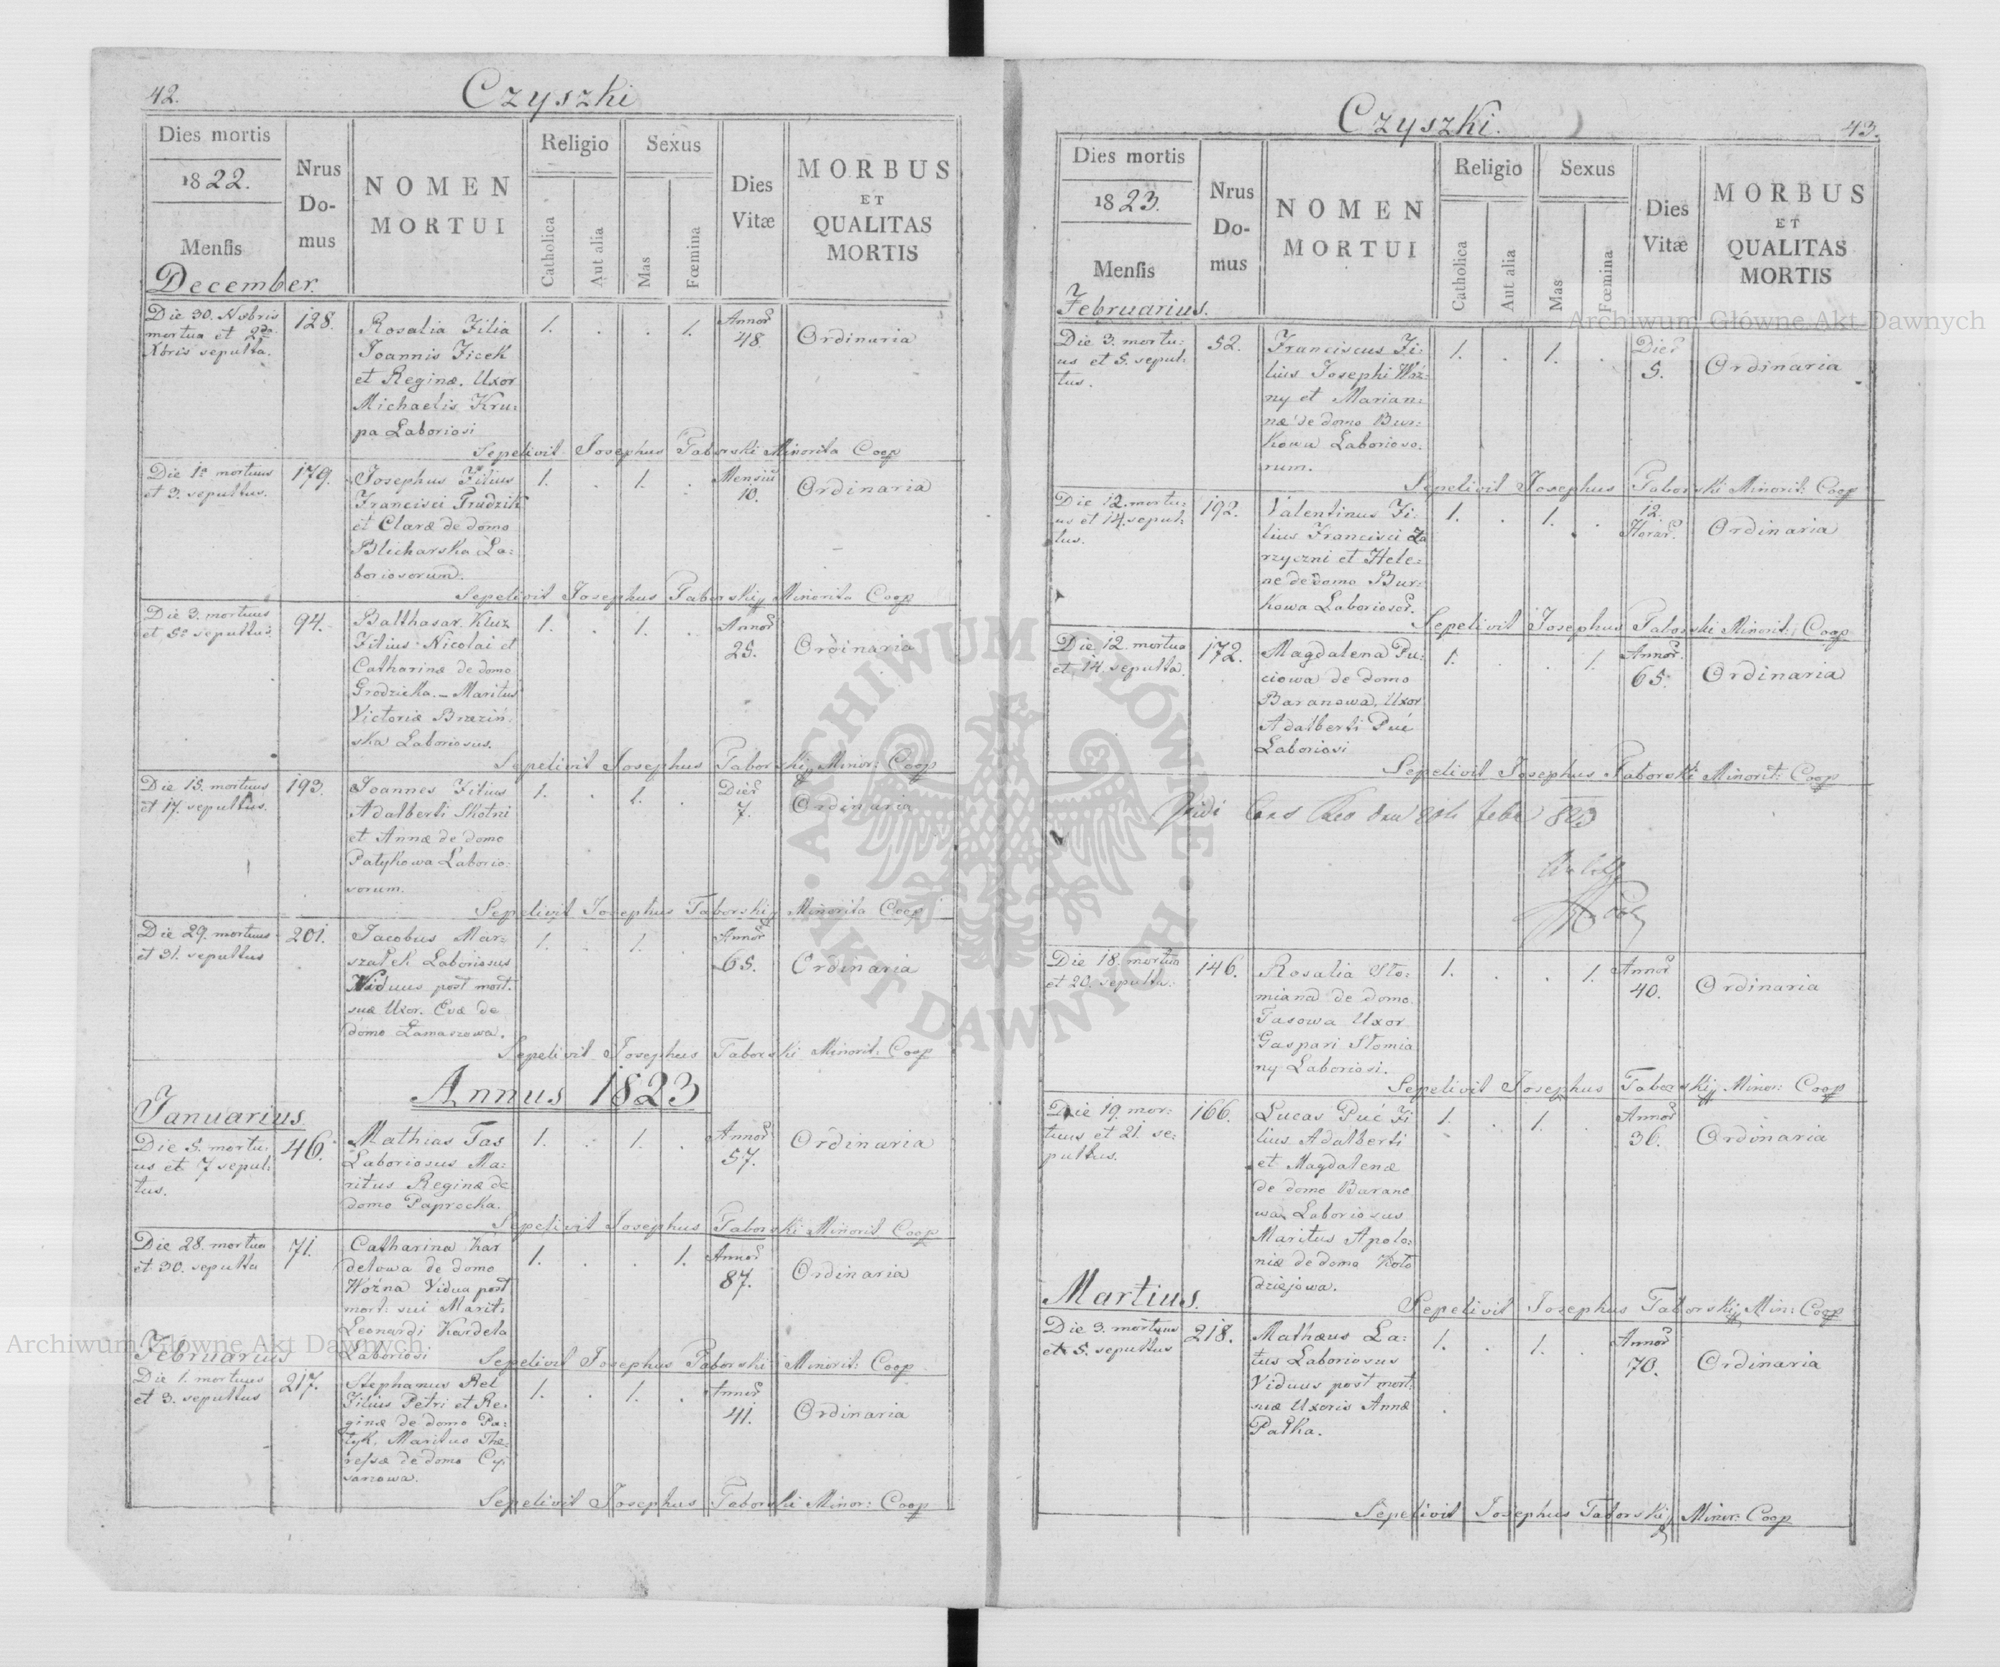 42.
Czyszki
Dies mortis
1822.
Mensis
December.
Nrus
Do-
mus
NOMEN
MORTUI
Religio
Catholica
Aut alia
Sexus
Mas
Fœmina
Dies
Vitæ
MORBUS
ET
QUALITAS
MORTIS
Die 30. Nobris
mortua et 2da
Xbris sepulta.
128.
Rosalia Filia
Joannis Ficek
et Reginæ. Uxor
Michaelis Kru:
pa Laboriosi
1. . . 1.
Annor
48.
Ordinaria
Sepelivit Josephus Taborski Minorita Coop
Die 1a mortuus
et 3. sepultus.
179.
Josephus Filius
Francisci Prudzik
et Claræ de domo
Blicharska La:
boriosorum.
1. . 1. .
Mensiu
10.
Ordinaria
Sepelivit Josephus Taborskij Minorita Coop
Die 3. mortuus
et 5o sepultus
94.
Balthasar Kluz
Filius Nicolai et
Catharinæ de domo
Grodzicka. – Maritus
Victoriæ Brzeziń:
ska Laboriosus.
1. . 1. .
Annor
25.
Ordinaria
Sepelivit Josephus Taborskij Minor: Coop
Die 15. mortuus
et 17. sepultus.
193.
Joannes Filius
Adalberti Skotni
et Annæ de domo
Patykowa Laborio:
sorum.
1. . 1. .
Dier
7.
Ordinaria
Sepelivit Josephus Taborskij Minorita Coop
Die 29. mortuus
et 31. sepultus
201.
Jacobus Mar:
szałek Laboriosus
Viduus post mort:
suæ Uxor. Evæ de
domo Łamaszowa.
1. . 1. .
Annor
65.
Ordinaria
Sepelivit Josephus Taborski Minorit: Coop
Annus 1823
Januarius
Die 5. mortu:
us et 7 sepul:
tus.
46.
Mathias Tas
Laboriosus Ma:
ritus Reginæ de
domo Paprocka.
1. . 1. .
Annor
57.
Ordinaria
Sepelivit Josephus Taborski Minorit Coop
Die 28. mortua
et 30. sepulta
71.
Catharina Kar
delowa de domo
Woźna Vidua post
mort: sui Marit:
Leonardi Kardela
Laboriosi
1. . . 1.
Annor
87.
Ordinaria
Sepelivit Josephus Taborski Minorit: Coop
Februarius
Die 1. mortuus
et 3. sepultus
217.
Stephanus Rel
Filius Petri et Re:
ginæ de domo Pa:
tyk, Maritus The:
resæ de domo Cy:
sarzowa.
1. . 1. .
Annor
41.
Ordinaria
Sepelivit Josephus Taborski Minor: Coop
Czyszki.
43.
Dies mortis
1823.
Mensis
Februarius.
Nrus
Do-
mus
NOMEN
MORTUI
Religio
Catholica
Aut alia
Sexus
Mas
Fœmina
Dies
Vitæ
MORBUS
ET
QUALITAS
MORTIS
Die 3. mortu:
us et 5. sepul:
tus.
52.
Franciscus Fi:
lius Josephi Woź:
ny et Marian:
næ de domo Bur:
kowa Laborioso:
rum.
1. . 1. .
Dier
5.
Ordinaria
Sepelivit Josephus Taborski Minorit: Coop
Die 12. mortu:
us et 14. sepul:
tus.
192.
Valentinus Fi:
lius Francisci Za
rzyczni et Hele:
næ de domo Bur:
kowa Laboriosor.
1. . 1. .
12.
Horar.
Ordinaria
Sepelivit Josephus Taborski Minorit: Coop
Die 12. mortua
et 14. sepulta.
172.
Magdalena Pu:
ciowa de domo
Baranowa. Uxor
Adalberti Puć
Laboriosi
1. . . 1.
Annor
65.
Ordinaria
Sepelivit Josephus Taborski Minorit: Coop
Vidi
Die 18. mortua
et 20. sepulta:
146.
Rosalia Sło:
miana de domo
Tasowa Uxor
Gaspari Słomia
ny Laboriosi.
1. . . 1.
Annor
40.
Ordinaria
Sepelivit Josephus Taborskij Minor: Coop
Die 19. mor:
tuus et 21. se:
pultus.
166.
Lucas Puć Fi
lius Adalberti
et Magdalenæ
de domo Barano
wa Laboriosus
Maritus Apolo:
niæ de domo Koło
dziejowa.
1. . 1. .
Annor
36.
Ordinaria
Sepelivit Josephus Taborskij Min: Coop
Martius.
Die 3. mortuus
et 5. sepultus
218.
Mathæus La:
tus Laboriosus
Viduus post mort:
suæ Uxoris Annæ
Pałka.
1. . 1. .
Annor
70.
Ordinaria
Sepelivit Josephus Taborskij Minor: Coop
Archiwum Główne Akt Dawnych
Archiwum Główne Akt Dawnych
ARCHIWUM GŁÓWNE AKT DAWNYCH